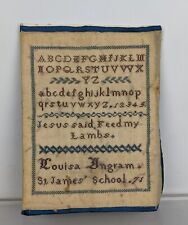 ABCDEFGHIJKLM
NOPQRSTUVWX
YZ
abcdefghijklmnop
qrstuvwxyz,12345
Jesus said, Feed my
Lambs.
Louisa Ingram.
St James' School. 71